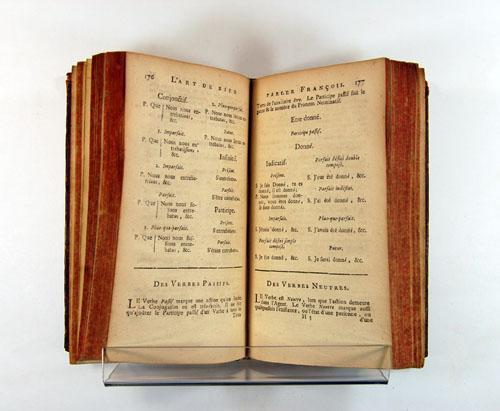 176 L'ART DE BIEN
Conjonctif.
P. Que Nous nous en-
&c.
1. Imparfait.
P. Que Nous nous en-
&c.
2. Imparfait.
P. Nous nous
&c.
Parfait.
P. Que Nous nous
&c.
1. Plus-que-parfait.
P. Que Nous nous
&c.
2. Plus-que-parfait.
P. Nous nous
&c.
Futur.
P. Nous nous
&c.
Infinitif.
Présent.
Parfait.
Participe.
Présent.
Parfait.
DES VERBES PASSIFS.
LE Verbe Passif marque une action
La Conjugaison en est
le Participe passif d'un Verbe à tous
Tems
PARLER FRANÇOIS. 177
Tems de l'auxiliaire être. Le Participe passif suit le
genre & le nombre du Pronom Nominatif.
Etre donné.
Participe passif.
Donné.
Indicatif.
Présent.
S. Je suis Donné, tu es
donné, il est donné;
P. Nous sommes don-
nés, vous êtes donnés,
ils sont donnés.
Imparfait.
S. J'étois donné, &c.
Parfait défini simple
composé.
S. Je fus donné, &c.
Parfait défini double
composé.
S. J'eus été donné, &c.
Parfait indéfini.
S. J'ai été donné, &c.
Plus-que-parfait.
S. J'avois été donné, &c.
Futur.
S. Je serai donné, &c.
DES VERBES NEUTRES.
LE Verbe est Neutre, lors que l'action demeure
dans l'Agent. Le Verbe Neutre marque aussi
l'existence, ou l'état d'une patience, ou
H 5 d'une